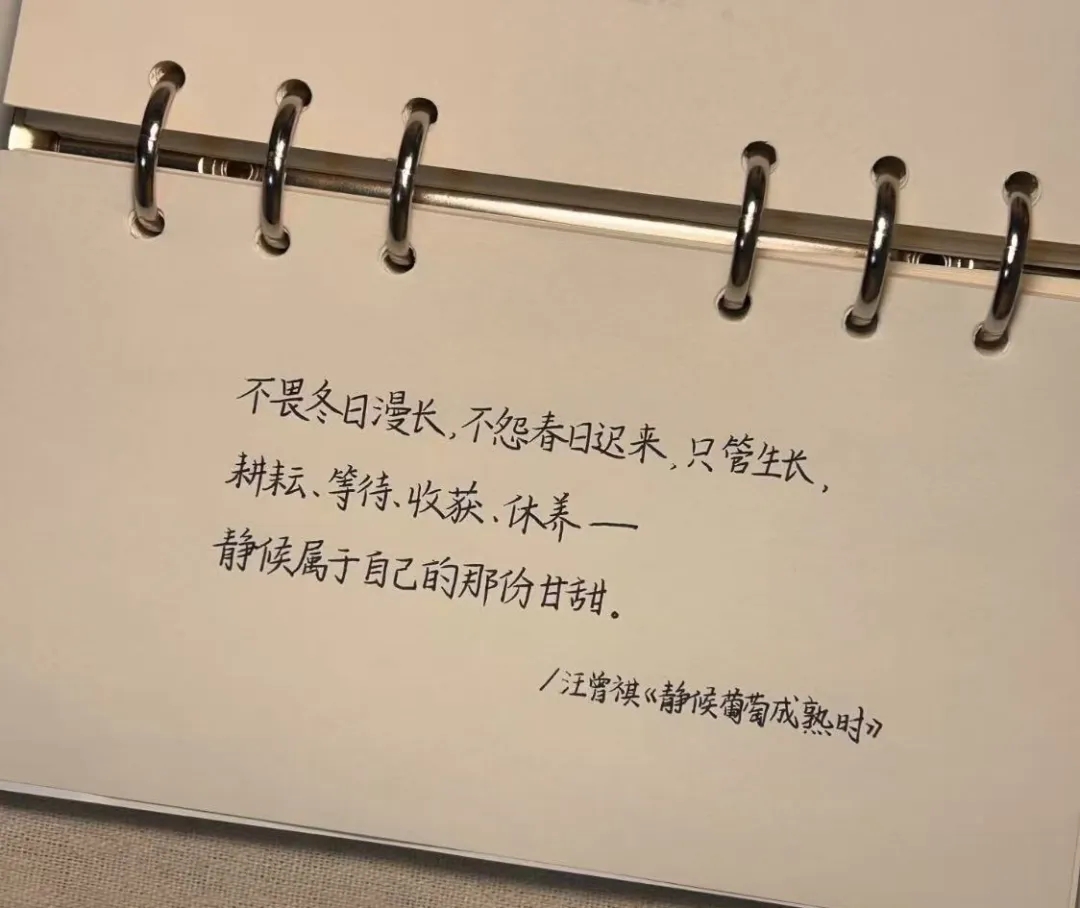 不畏冬日漫长,不怨春日迟来,只管生长,
耕耘、等待、收获、休养—
静候属于自己的那份甘甜。
/汪曾祺《静候葡萄成熟时》